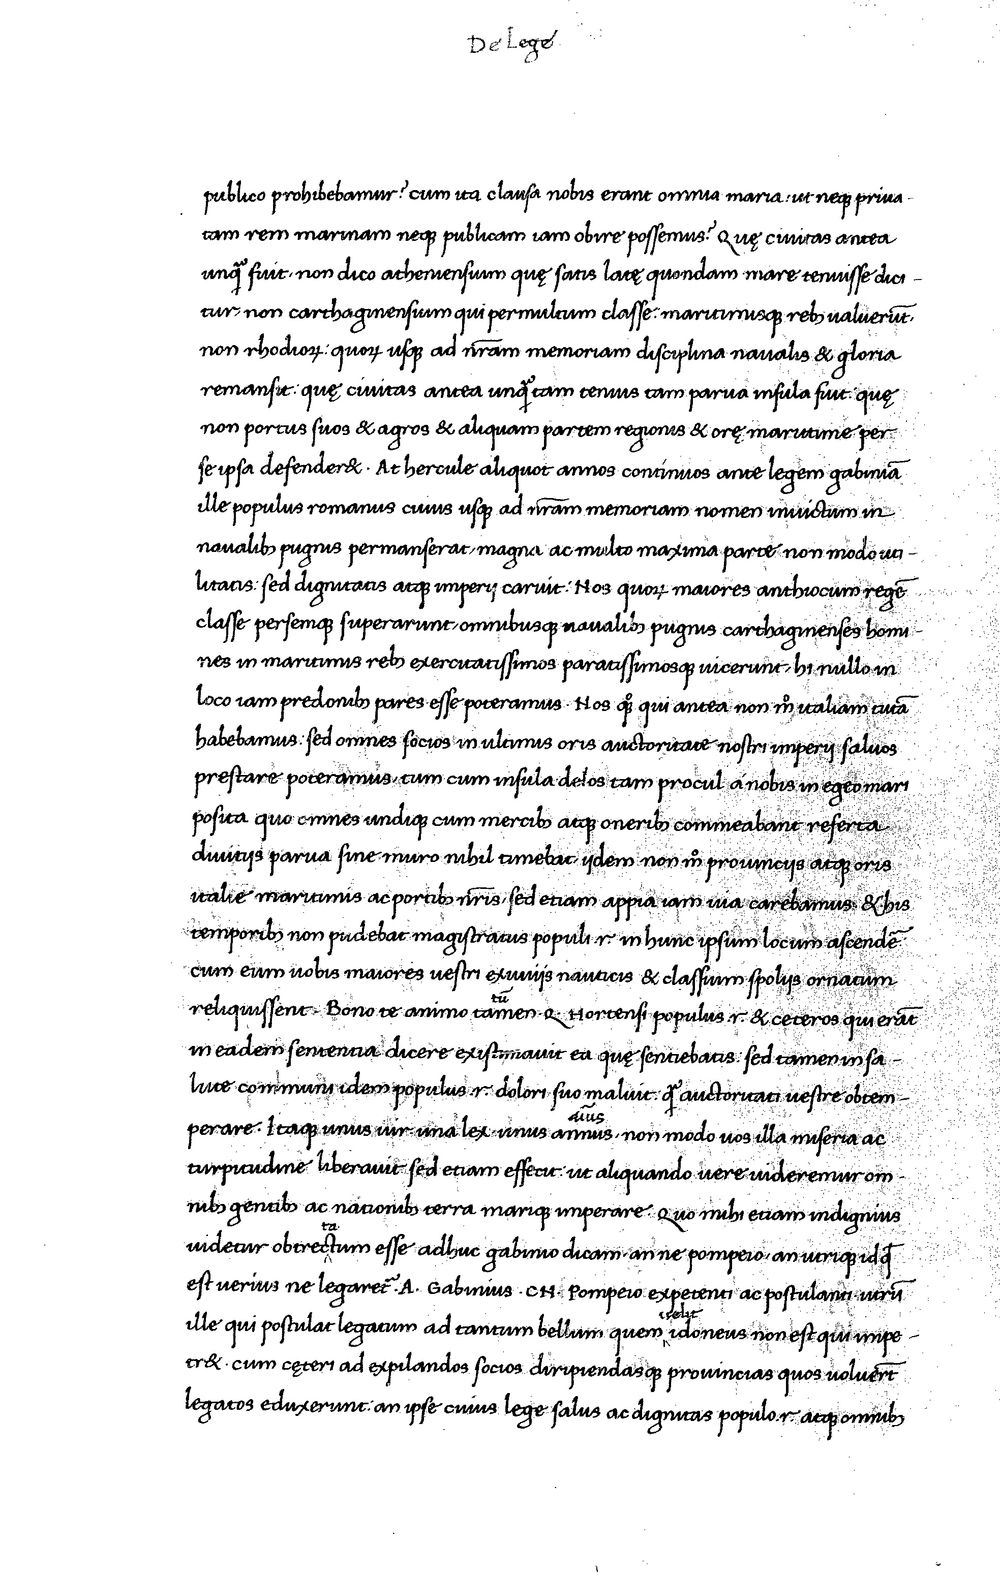 De Lege
publico prohibebamur? cum ita clausa nobis erant omnia maria: ut neqꝫ priua-
tam rem marinam neqꝫ publicam iam obire possemus? Quę ciuitas antea
unqᷓ fuit, non dico atheniensium quę satis latę quondam mare tenuisse dici-
tur, non carthaginensium qui permultum classe: maritimisqꝫ rebꝫ ualuerūt,
non rhodioꝝ: quoꝝ usqꝫ ad nr̄am memoriam disciplina naualis & gloria
remansit: quę ciuitas antea unqᷓ tam tenuis tam parua insula fuit: quę
non portus suos & agros & aliquam partem regionis & orę maritime per
se ipsa defender&. At hercule aliquot annos continuos ante legem gabiniā
ille populus romanus cuius usqꝫ ad nr̄am memoriam nomen inuictum in
naualibꝫ pugnis permanserat, magna ac multo maxima parte non modo uti-
litatis: sed dignitatis atqꝫ imperij caruit: Nos quoꝝ maiores anthiocum regē
classe persemqꝫ superarunt, omnibusqꝫ naualibꝫ pugnis carthaginenses homi-
nes in maritimis rebꝫ exercitatissimos paratissimosqꝫ uicerunt, hi nullo in
loco iam predonibꝫ pares esse poteramus. Nos qꝫ qui antea non mͦ italiam tutā
habebamus: sed omnes socios in ultimis oris auctoritate nostri imperij saluos
prestare poteramus, tum cum insula delos tam procul a nobis in egeo mari
posita quo omnes undiqꝫ cum mercibꝫ atqꝫ oneribꝫ commeabant referta
diuitijs parua sine muro nihil timebat, ijdem non mͦ prouincijs atqꝫ oris
italie maritimis ac portibꝫ nr̄is, sed etiam appia iam uia carebamus: & his
temporibꝫ non pudebat magistratus populi .r. in hunc ipsum locum ascendē
cum eum uobis maiores uestri exuuijs nauticis & classium spolijs ornatum
reliquissent. Bono te animo tamen .Q. Hortensi populus .r. & ceteros qui erāt
tū
in eadem sententia dicere existimauit ea quę sentiebatis: sed tamen in sa-
lute communi idem populus .r. dolori suo maluit: qᷓ auctoritati uestre obtem-
perare. Itaqꝫ unus uir una lex unus annus, non modo uos illa miseria ac
turpitudine liberauit sed etiam effecit: ut aliquando uere uideremur om-
nibꝫ gentibꝫ ac nationibꝫ terra mariqꝫ imperare. Quo mihi etiam indignius
uidetur obtrectum esse adhuc gabinio dicam, an ne pompeio, an utriqꝫ idqᷓ
ta
est uerius ne legaret̄ .A. Gabinius .CN. Pompeio expetenti ac postulanti utrū
ille qui postulat legatum ad tantum bellum quem idoneus non est qui impe-
uelit
tr&. cum cęteri ad expilandos socios diripiendasqꝫ prouincias quos uoluer̄t
legatos eduxerunt: an ipse cuius lege salus ac dignitas populo .r. atqꝫ omnibꝫ